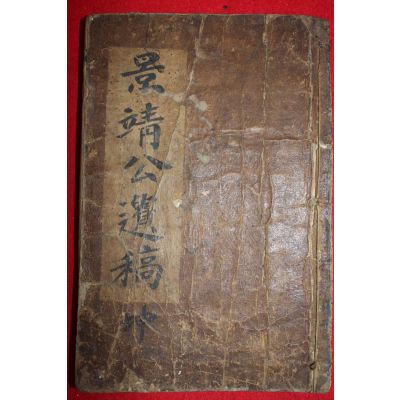 景靖公遺稿 地